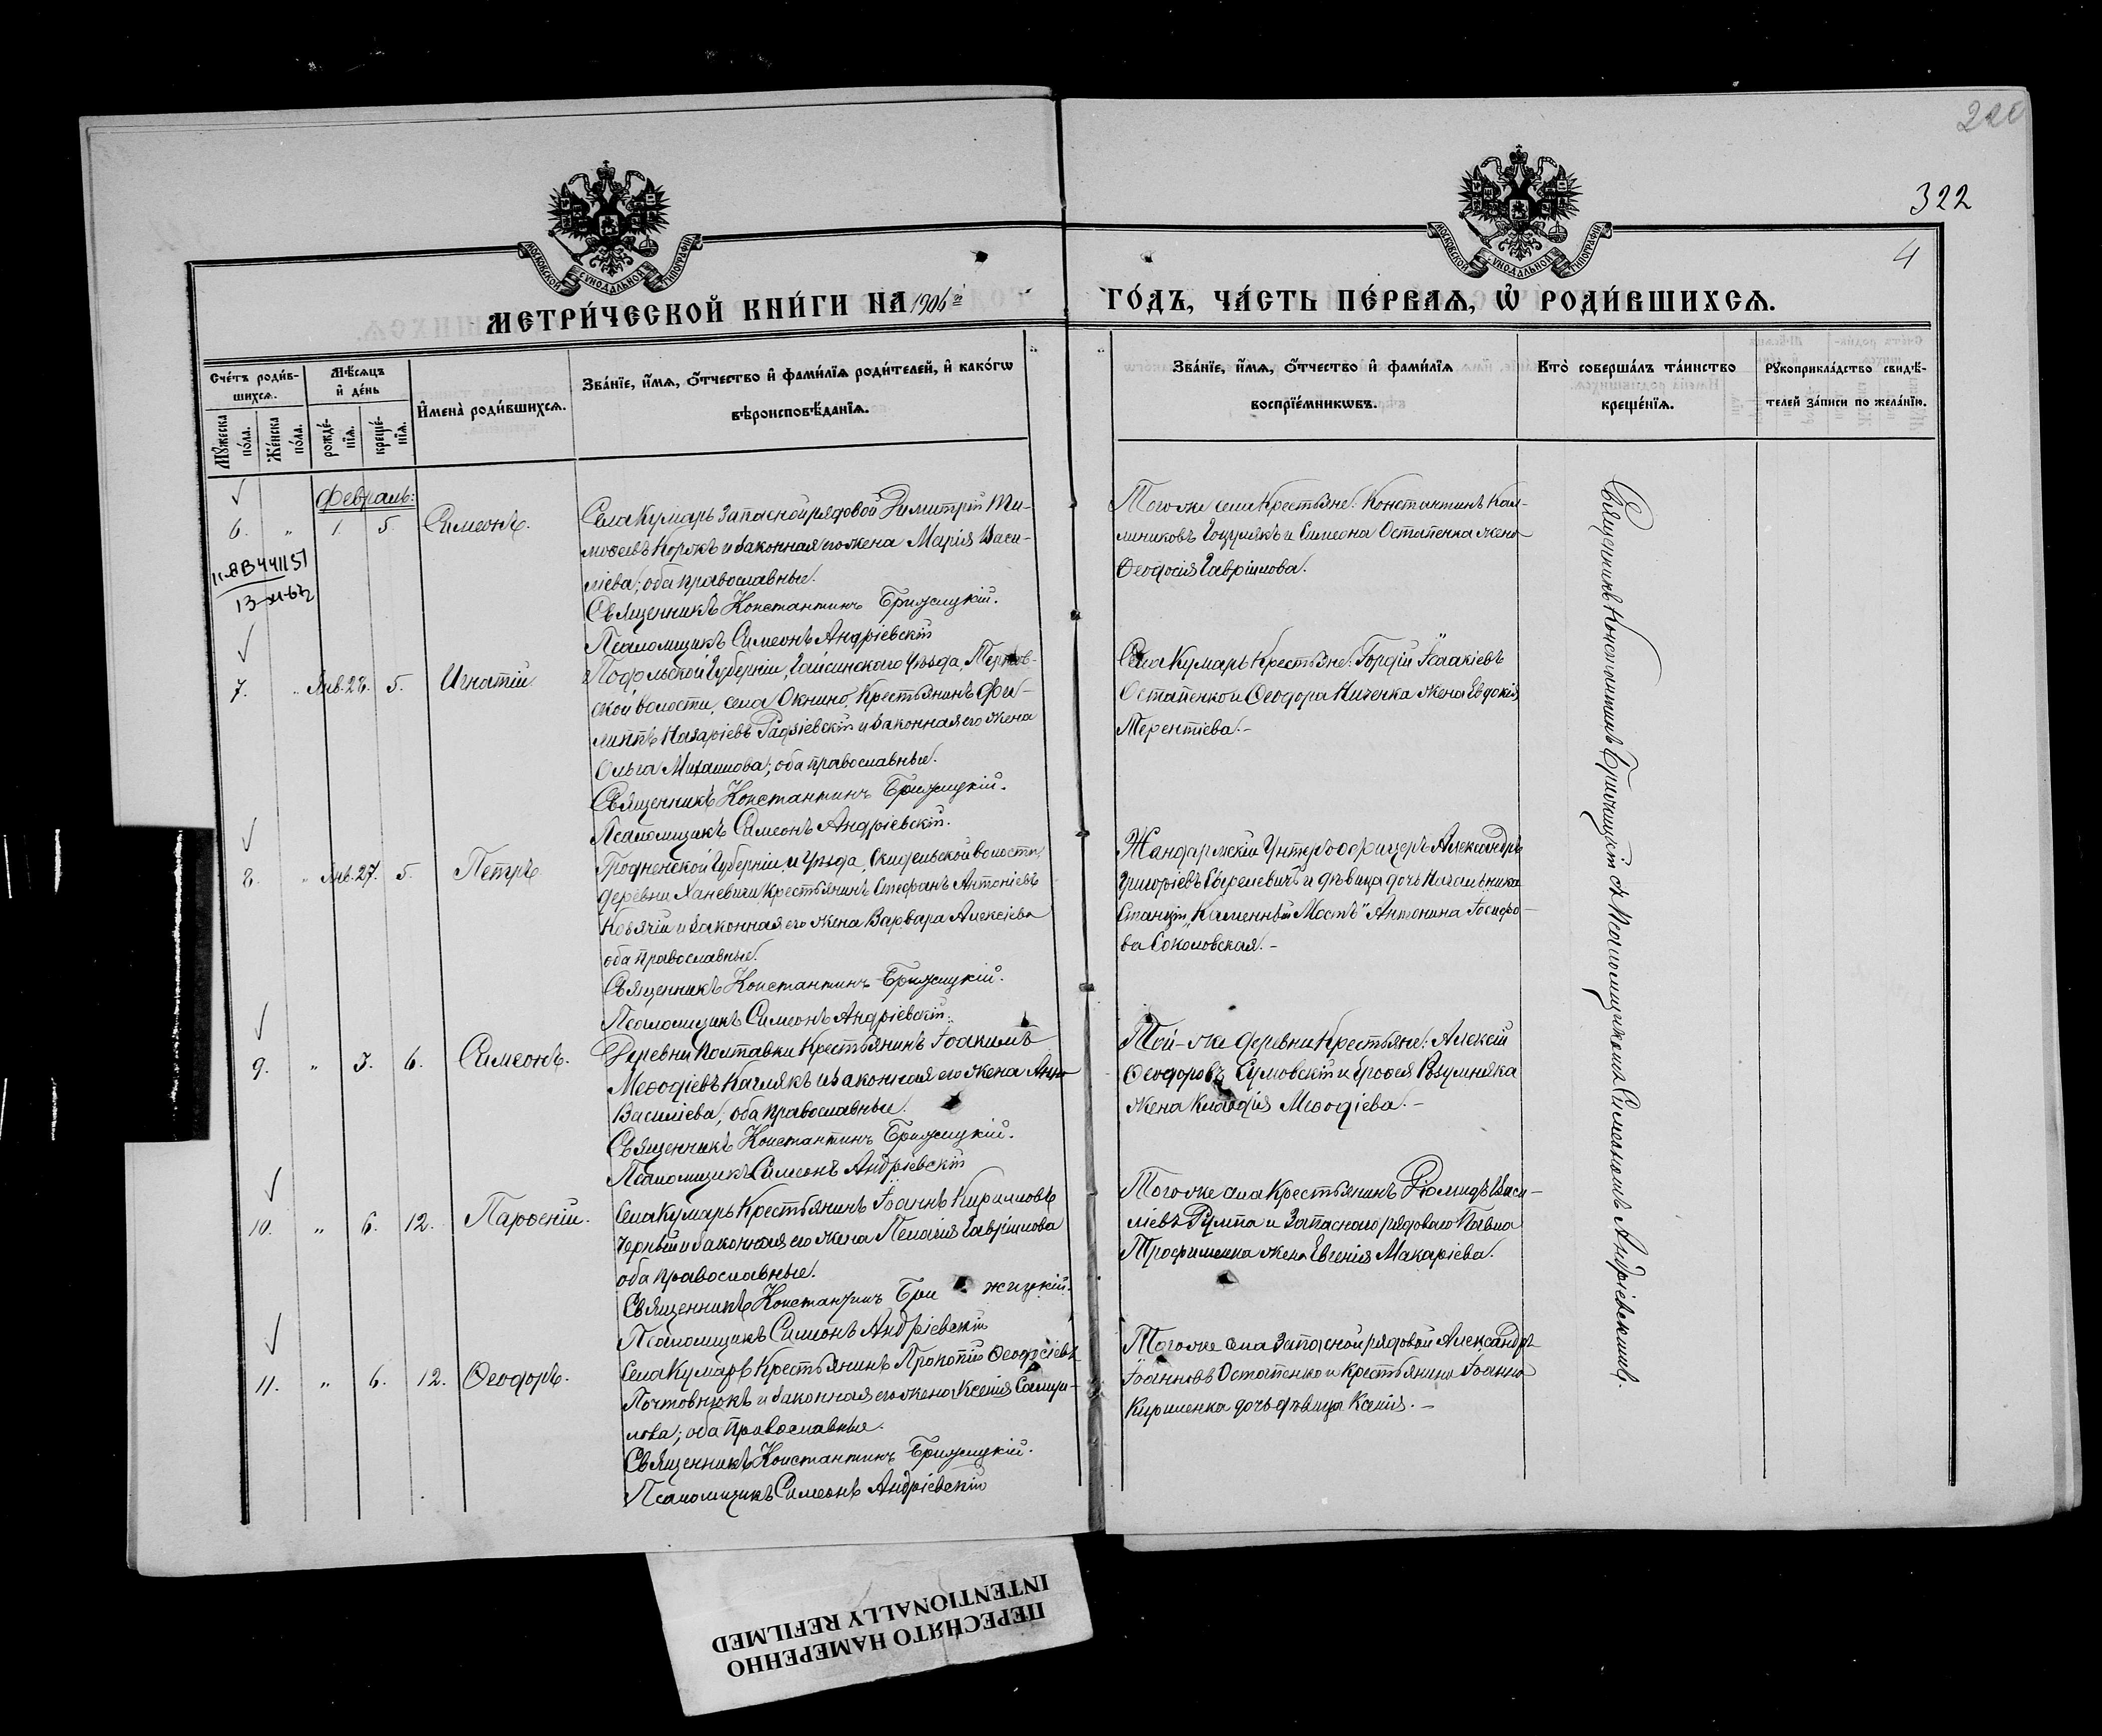 322
4
МОСКОВСКОЙ СѴНОДАЛЬНОЙ ТИПОГРАФІИ
МОСКОВСКОЙ СѴНОДАЛЬНОЙ ТИПОГРАФІИ
МЕТРИ́ЧЕСКОЙ КНИ́ГИ НА 1906й
ГО́ДЪ, ЧА́СТЬ ПЕ́РВАѦ, Ѡ҆ РОДИ́ВШИХСѦ.
Сче́тъ роди́в-
шихсѧ.
Мꙋ́жеска по́ла.
Же́нска по́ла.
Мѣ́сѧцъ
и҆ де́нь
рожде́-
нїѧ.
креще́-
нїѧ.
И҆мена̀ роди́вшихсѧ.
Зва́нїе, и҆́мѧ, ѻ҆́тчество и҆ фами́лїѧ роди́телей, и҆ како́гѡ
вѣроисповѣ́данїѧ.
Зва́нїе, и҆́мѧ, ѻ҆́тчество и҆ фами́лїѧ
воспрїе́мникѡвъ.
Кто̀ соверша́лъ та́инство
креще́нїѧ.
Рꙋкоприкла́дство свидѣ́-
телей за́писи по жела́нїю.
Февраль:
6. " 1. 5. Симеонъ.
13-XI-62
Села Кумарь запасной рядовой Димитрій Ти-
мофеевъ Коржъ и законная его жена Марія Васи-
ліева; оба православные.
Священникъ Константинъ Брижицкій.
Псаломщикъ Симеонъ Андріевскій
Того-же села Крестьяне: Константинъ
и Симеона Остапенка жена
Ѳеодосія Гавріилова.
7. " Янв. 28. 5. Игнатій
Подольской Губерніи, Гайсинскаго Уѣзда,
ской волости, села Окнино, Крестьянинъ Фи-
липпъ Назаріевъ Радзіевскій и законная его жена
Ольга Михаилова; оба православные.
Священникъ Константинъ Брижицкій.
Псаломщикъ Симеонъ Андріевскій.
Села Кумарь Крестьяне: Гордій Исаакіевъ
Остапенко и Ѳеодора Ниченка жена Евдокія
Терентіева.-
8. " Янв. 27. 5. Петръ
Гродненской Губерніи и Уѣзда, Скидельской волости,
деревни Ханевичи Крестьянинъ Стефанъ Антоніевъ
и законная его жена Варвара Алексіева
оба православные.
Священникъ Константинъ Брижицкій.
Псаломщикъ Симеонъ Андріевскій.
Жандармскій Унтеръ-офицеръ Александръ
Григоріевъ и дѣвица дочь Начальника
Станціи "Каменный Мостъ" Антонина Іосифо-
ва Соколовская.-
9. " 3. 6. Симеонъ.
Деревни Полтавки Крестьянинъ Іоакимъ
Меѳодіевъ Качлякъ и законная его жена Анна
Василіева; оба православные.
Священникъ Константинъ Брижицкій.
Псаломщикъ Симеонъ Андріевскій
Той-же деревни Крестьяне: Алексій
Ѳеодоровъ Сумовскій и
жена Клавдія Меѳодіева.-
10. " 6. 12. Парѳеній.
Села Кумарь Крестьянинъ Іоаннъ Кирилловъ
Черный и законная его жена Пелагія Гавріилова
оба православные.
Священникъ Константинъ Брижицкій.
Псаломщикъ Симеонъ Андріевскій
Того-же села Крестьянинъ Діомидъ Васи-
ліевъ и Запаснаго рядоваго Павла
Трофименка жена Евгенія Макаріева.
11. " 6. 12. Ѳеодоръ.
Села Кумарь Крестьянинъ Прокопій Ѳеодосіевъ
Почтовнюкъ и законная его жена Ксенія Самуи-
лова; оба православные.
Священникъ Константинъ Брижицкій.
Псаломщикъ Симеонъ Андріевскій
Того-же села Запасной рядовой Александръ
Іоанновъ Остапенко и Крестьянина Іоанна
Кириленка дочь дѣвица Ксенія.-
Священникъ Константинъ Брижицкій съ Псаломщикомъ Симеономъ Андріевскимъ.
ПЕРЕСНЯТО НАМЕРЕННО
INTENTIONALLY REFILMED